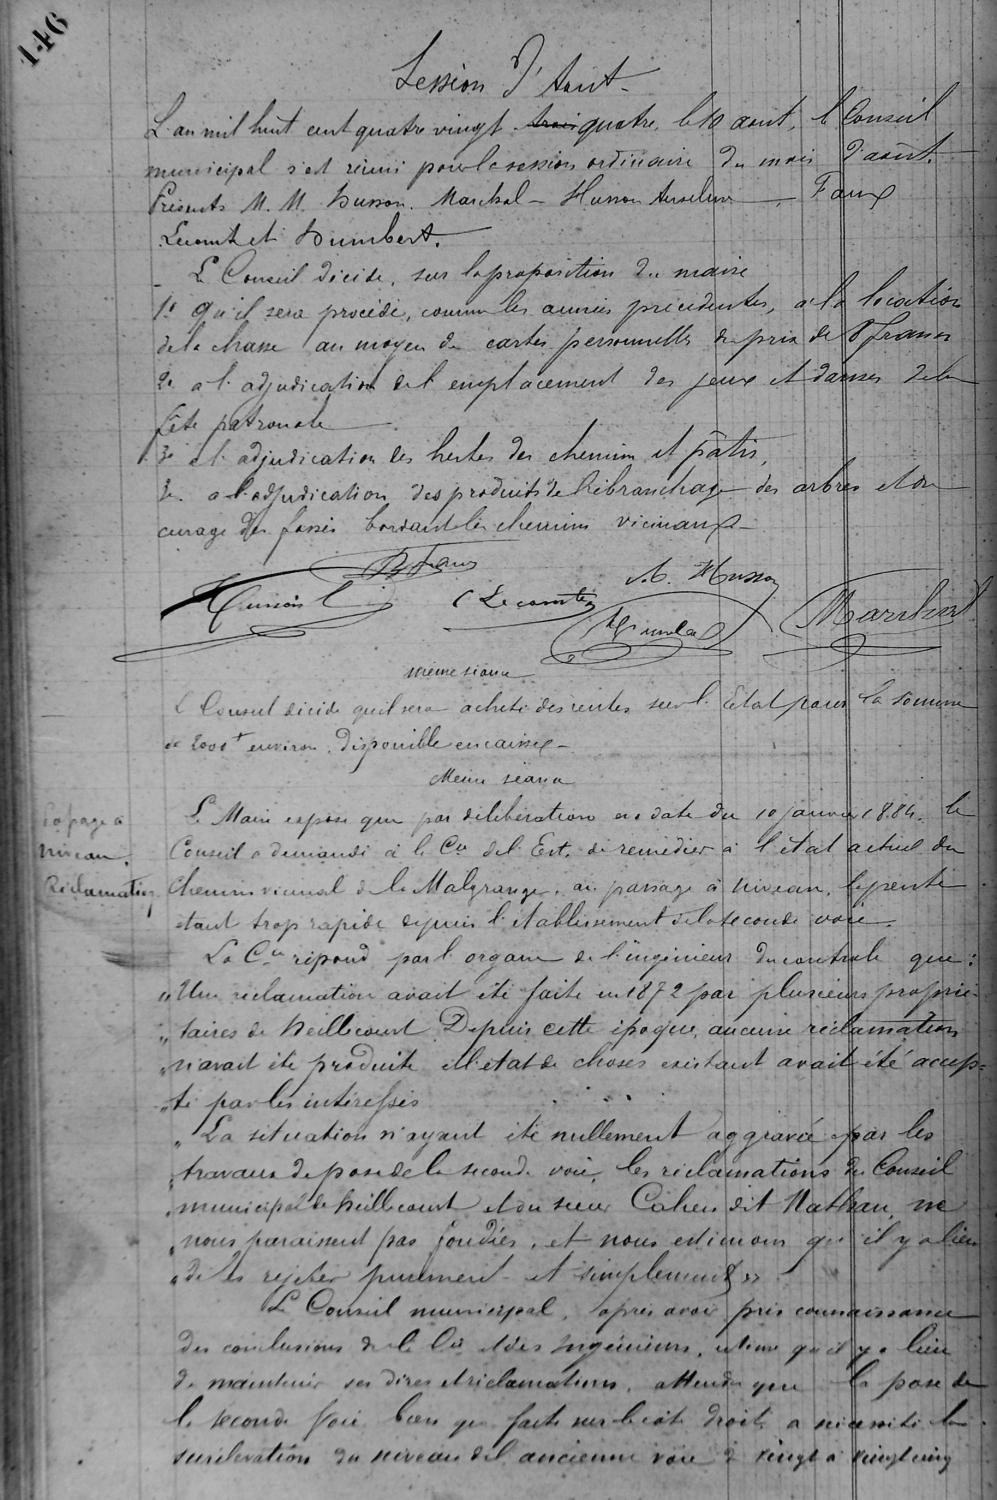 146
Session d'Aout
L'an mil huit cent quatre vingt trois quatre, le 10 aout, le Conseil
municipal s'est réuni pour la session ordinaire du mois d'août.
Présents M. M. Husson. Marchal – Husson Anselme, Faux
Lecomte et Humbert.
Le Conseil décide, sur la proposition du maire
1º qu'il sera procédé, comme les années précédentes, à la location
de la chasse au moyen de cartes personnelles du prix de 8 francs
2º a l'adjudication de l'emplacement des jeux et danses de la
fête patronale
3º et l'adjudication des herbes des chemins et pâtis,
4º a l'adjudication des produits de l'ébranchage des arbres et du
curage des fossés bordant les chemins vicinaux –
B Faux
Husson
C Lecomte
A. Husson
Humbert
Marchal
même séance
Le Conseil décide qu'il sera acheté des rentes sur l'Etat pour la somme
de 2000 f environ, disponible en caisse –
Même séance
Passage à
niveau.
Réclamation
Le Maire expose que par délibération en date du 10 janvier 1884, le
Conseil a demandé à la Cie de l'Est, de remédier à l'état actuel du
Chemin vicinal de la Malgrange, au passage à niveau, la pente
étant trop rapide depuis l'établissement de la seconde voie.
La Cie répond par l'organe de l'ingénieur du contrôle que :
„ Une réclamation avait été faite en 1872 par plusieurs proprié-
„ taires de Heillecourt. Depuis cette époque, aucune réclamation
„ n'avait été produite et l'état de choses existant avait été accep-
„ té par les intéressés
„ La situation n'ayant été nullement aggravée par les
„ travaux de pose de la seconde voie, les réclamations du Conseil
„ municipal de Heillecourt et du sieur Cahen dit Nathan, ne
„ nous paraissent pas fondées, et nous estimons qu'il y a lieu
„ de les rejeter purement et simplement »
Le Conseil municipal, après avoir pris connaissance
des conclusions de la Cie et des Ingénieurs, estime qu'il y a lieu
de maintenir ses dires et réclamations, attendu que la pose de
la seconde voie bien que faite sur le côté droit, a nécessité la
surélévation du niveau de l'ancienne voie de vingt à vingt cinq